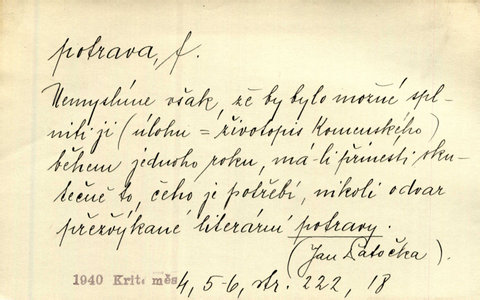 potrava, f.
Nemyslíme však, že by bylo možné spl-
niti ji (úlohu = životopis Komenského)
během jednoho roku, má-li přinésti sku-
tečně to, čeho je potřebí, nikoli odvar
přežvýkané literární potravy.
(Jan Patočka).
1940 Krit. měs. 4, 5-6, str. 222, 18